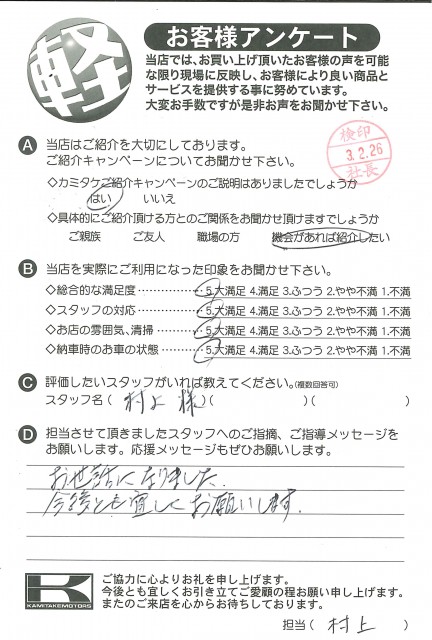 軽
お客様アンケート
当店では、お買い上げ頂いたお客様の声を可能
な限り現場に反映し、お客様により良い商品と
サービスを提供する事に努めています。
大変お手数ですが是非お声をお聞かせ下さい。
検印
3.2.26
社長
A 当店はご紹介を大切にしております。
ご紹介キャンペーンについてお聞かせ下さい。
◇カミタケご紹介キャンペーンのご説明はありましたでしょうか
はい いいえ
◇具体的にご紹介頂ける方とのご関係をお聞かせ頂けますでしょうか
ご親族 ご友人 職場の方 機会があれば紹介したい
B 当店を実際にご利用になった印象をお聞かせ下さい。
◇総合的な満足度……5.大満足 4.満足 3.ふつう 2.やや不満 1.不満
◇スタッフの対応……5.大満足 4.満足 3.ふつう 2.やや不満 1.不満
◇お店の雰囲気、清掃…5.大満足 4.満足 3.ふつう 2.やや不満 1.不満
◇納車時のお車の状態…5.大満足 4.満足 3.ふつう 2.やや不満 1.不満
C 評価したいスタッフがいれば教えてください。(複数回答可)
スタッフ名( 村上 様 )( )( )
D 担当させて頂きましたスタッフへのご指摘、ご指導メッセージを
お願いします。応援メッセージもぜひお願いします。
お世話になりました.
今後とも宜しくお願いします.
K
KAMITAKEMOTORS
ご協力に心よりお礼を申し上げます。
今後とも宜しくお引き立てご愛顧の程お願い申し上げます。
またのご来店を心からお待ちしております。
担当( 村上 )